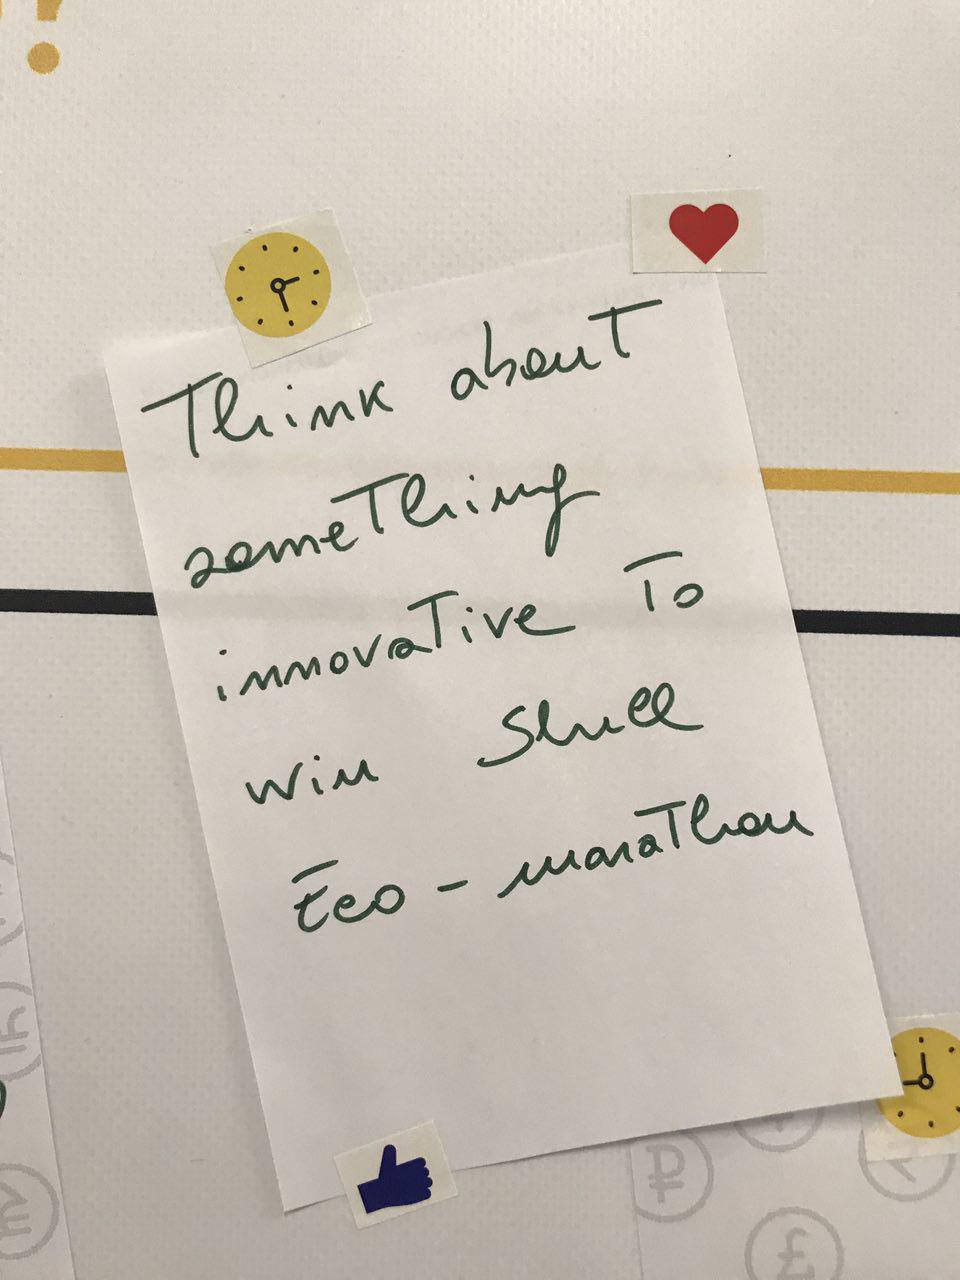 Think about
something
innovative to
win Shell
Eco - marathon